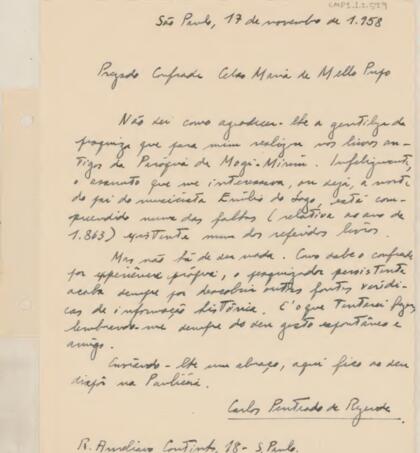 CMP1.1.2.599
São Paulo, 17 de novembro de 1.958
Prezado Confrade Celso Maria de Mello Pupo
Não sei como agradecer-lhe a gentileza da
pesquiza que para mim realizou nos livros an-
tigos da Paróquia de Mogi-Mirim. Infelizmente,
o assunto que me interessava, ou seja, a morte
do pai do musicista Emílio do Lago, está com-
preendido numa das faltas (relativa ao ano de
1.863) existente num dos referidos livros.
Mas não há de ser nada. Como sabe o confrade
por experiência própria, o pesquizador persistente
acaba sempre por descobrir outras fontes verídi-
cas de informação histórica. E' o que tentarei fazer,
lembrando-me sempre do seu gesto espontâneo e
amigo.
Enviando-lhe um abraço, aqui fico ao seu
dispôr na Paulicéia.
Carlos Penteado de Rezende
R. Aureliano Coutinho, 18 - S. Paulo.